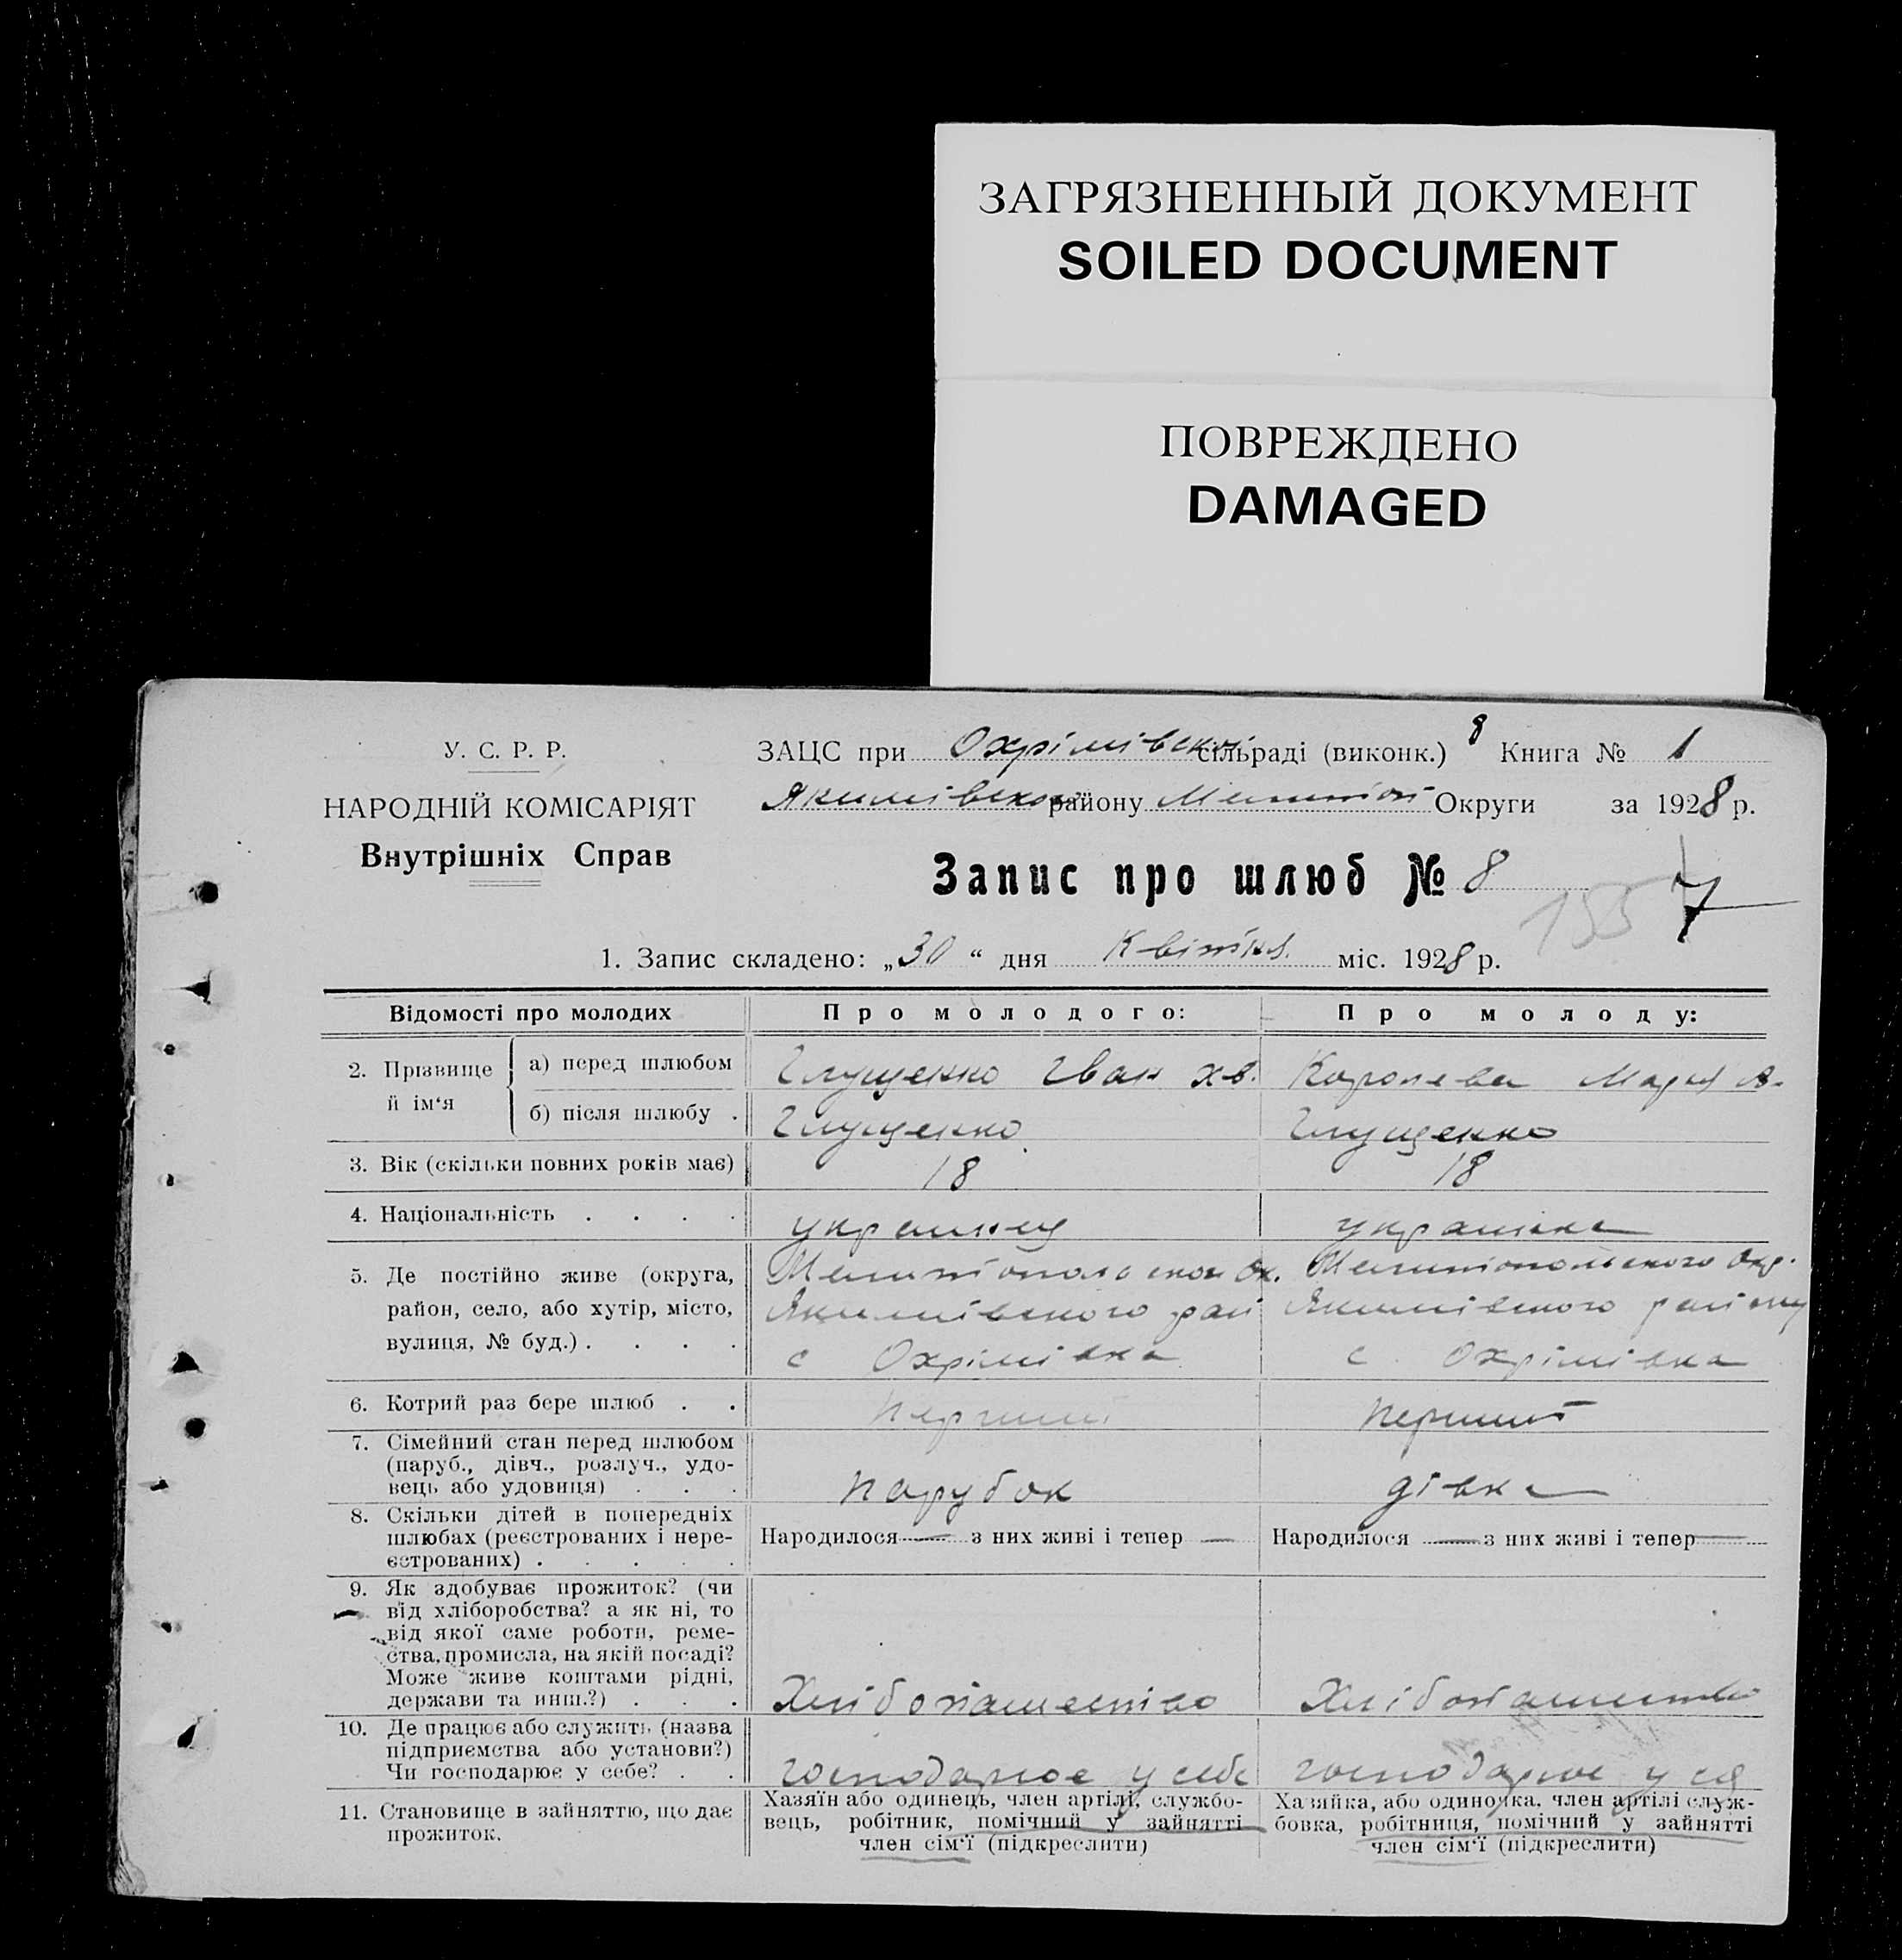 ЗАГРЯЗНЕННЫЙ ДОКУМЕНТ
SOILED DOCUMENT
ПОВРЕЖДЕНО
DAMAGED
У. С. Р. Р.
НАРОДНІЙ КОМІСАРІЯТ
Внутрішніх Справ
ЗАЦС при Охрімівській сільраді (виконк.) 8 Книга № 1
Якимівського району Мелитоп Округи за 1928 р.
Запис про шлюб № 8
155 7
1. Запис складено: „30“ дня Квітня міс. 1928 р.
Відомості про молодих
Про молодого:
Про молоду:
2. Прізвище й ім‘я
а) перед шлюбом
Глущенко Іван Хв.
Королева Мария А.
б) після шлюбу .
Глущенко
Глущенко
3. Вік (скільки повних років має)
18
18
4. Національність . . . .
українец
українка
5. Де постійно живе (округа,
район, село, або хутір, місто,
вулиця, № буд.) . . . .
Мелитопольськой Ок.
Якимівського рай
с Охрімівка
Мелитопольского Окр.
Якимівського району
с. Охрімівка
6. Котрий раз бере шлюб . .
перший
перший
7. Сімейний стан перед шлюбом
(паруб., дівч., розлуч., удо-
вець або удовиця) . . .
парубок
дівка
8. Скільки дітей в попередніх
шлюбах (реєстрованих і нере-
єстрованих) . . . . .
Народилося — з них живі і тепер —
Народилося — з них живі і тепер —
9. Як здобуває прожиток? (чи
від хліборобства? а як ні, то
від якої саме роботи, реме-
ства, промисла, на якій посаді?
Може живе коштами рідні,
держави та инш.?) . . .
Хлібопашество
Хлібопашество
10. Де працює або служить (назва
підприємства або установи?)
Чи господарює у себе? . .
господарює у себе
господарює у себ
11. Становище в зайняттю, що дає
прожиток.
Хазяїн або одинець, член артілі, службо-
вець, робітник, помічний у зайнятті
член сім‘ї (підкреслити)
Хазяйка, або одиночка, член артілі служ-
бовка, робітниця, помічний у зайнятті
член сім‘ї (підкреслити)